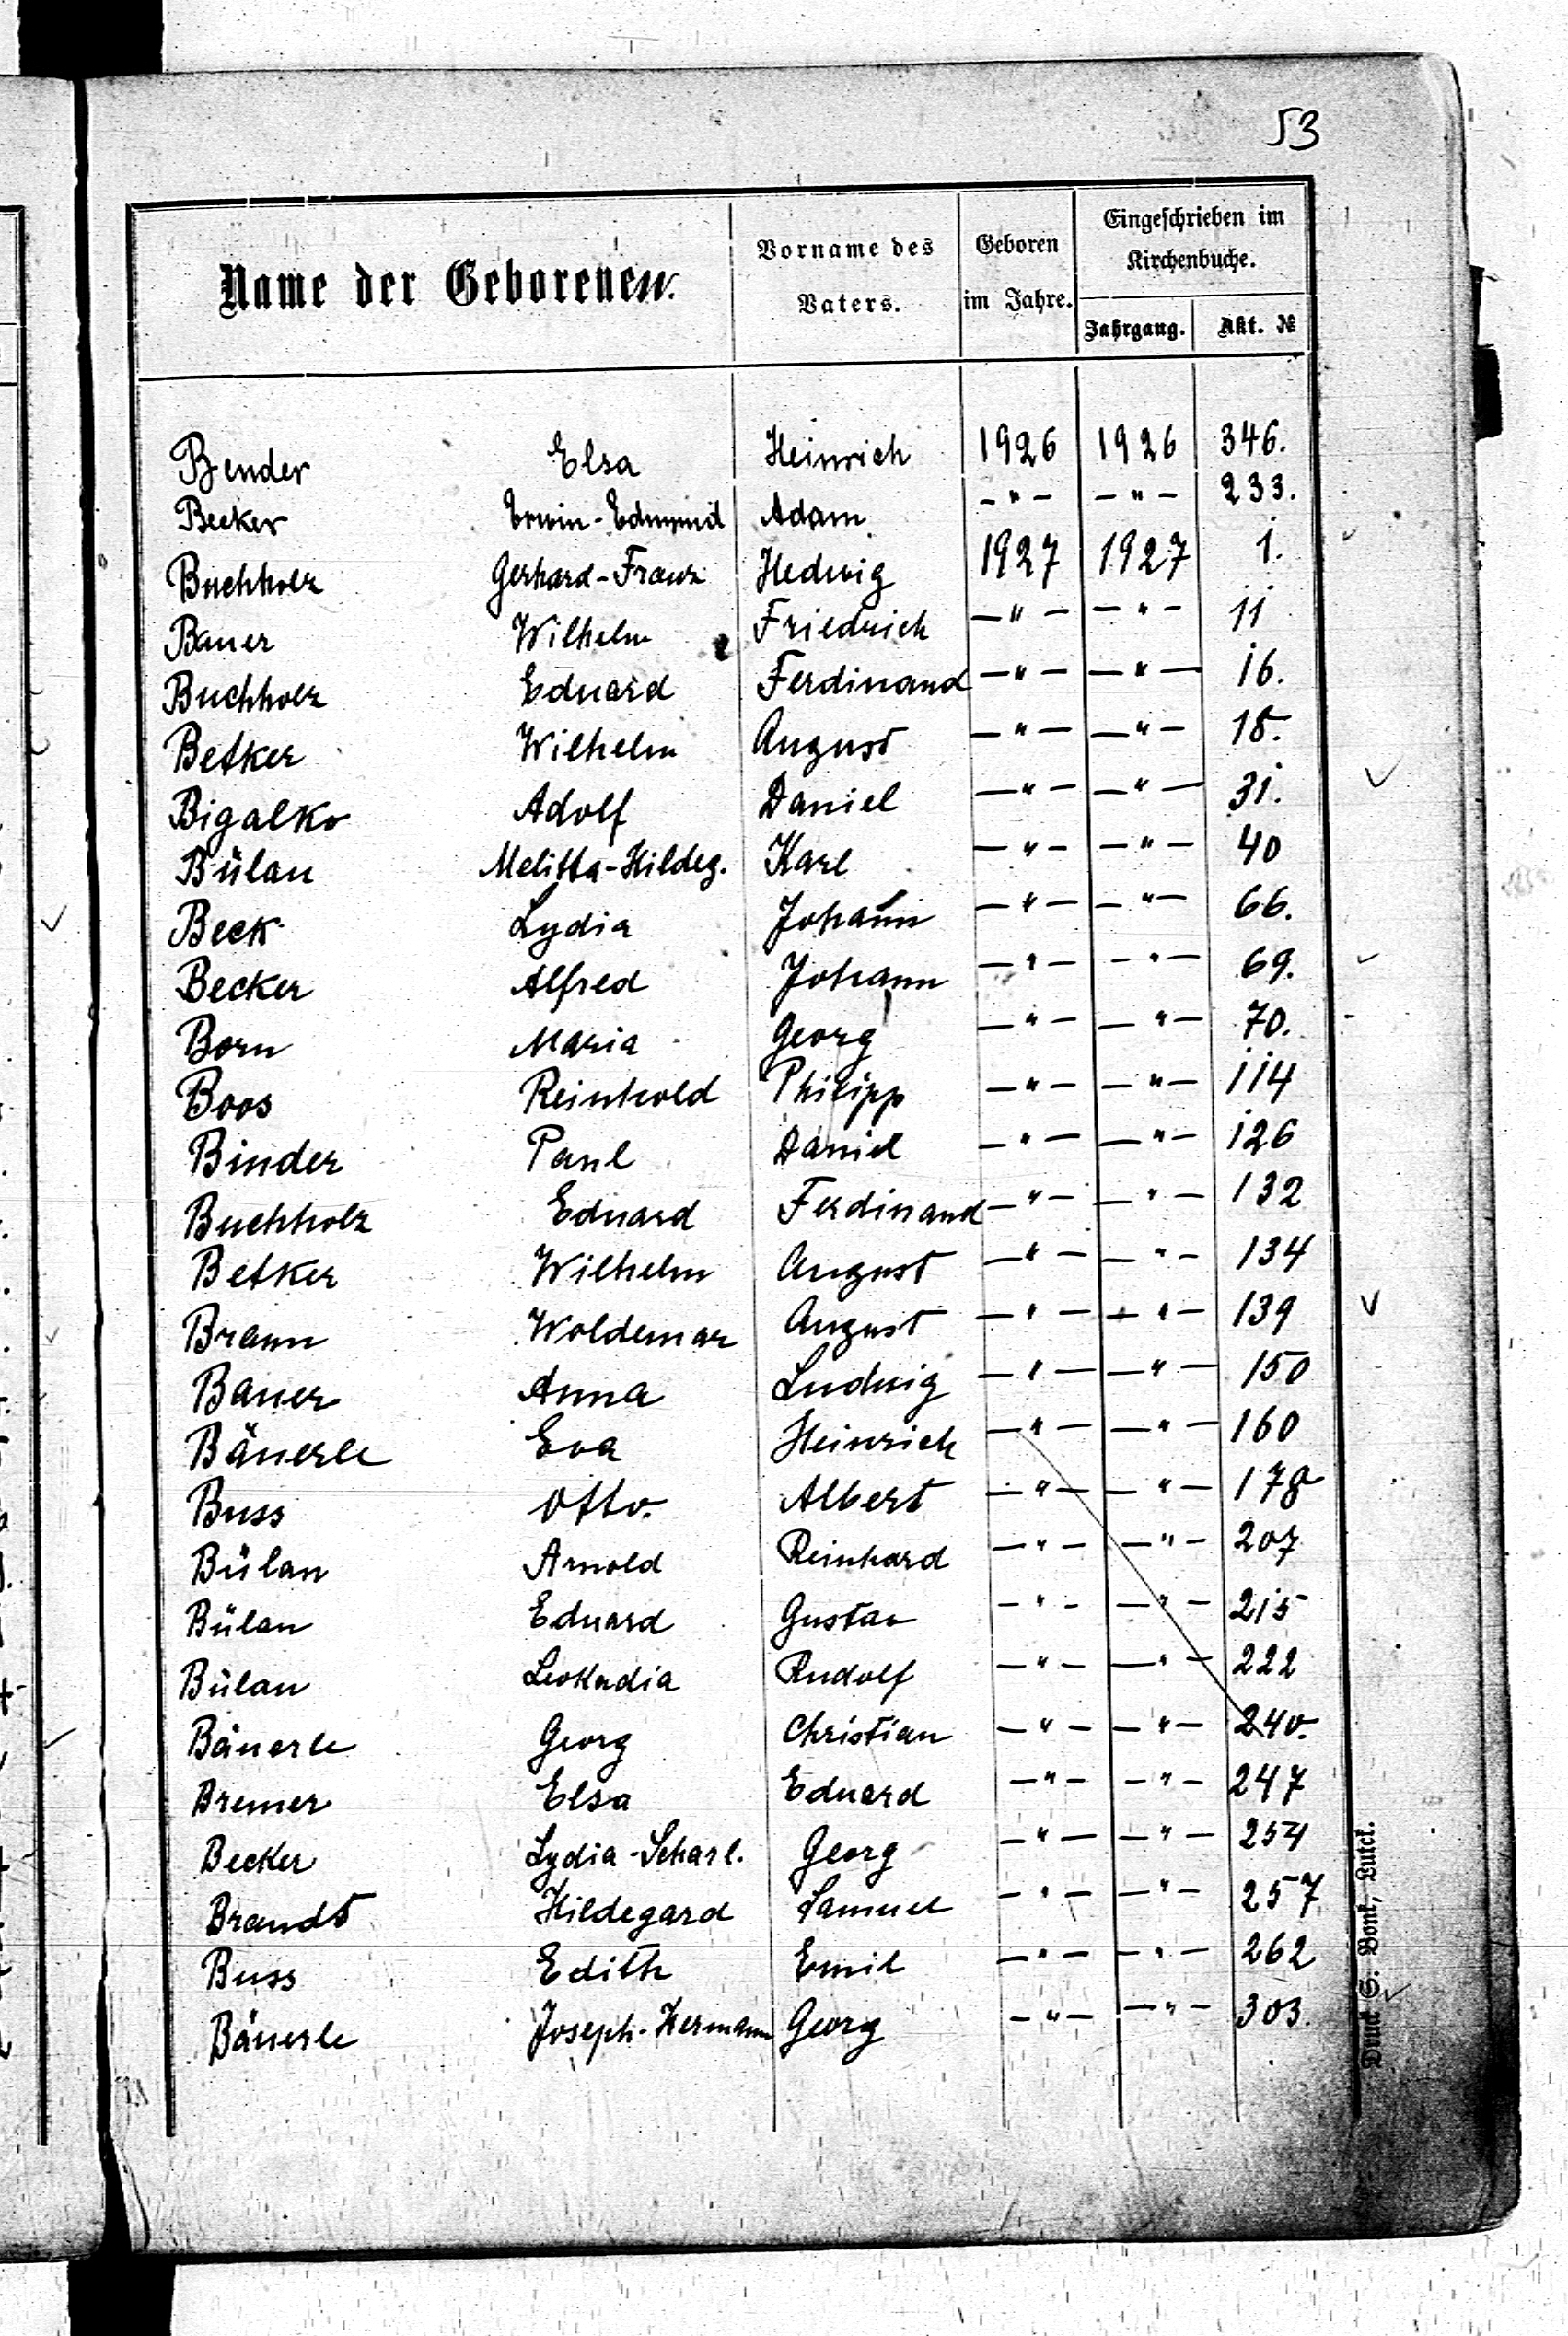 53
Name der Geborenen.
Vorname des Vaters.
Geboren im Jahre.
Eingeschrieben im Kirchenbuche.
Jahrgang. Akt. №
Bender Elsa Heinrich 1926 1926 346.
Becker Erwin-Edmund Adam - " - - " - 233.
Buchholz Gerhard-Franz Hedwig 1927 1927 1.
Bauer Wilhelm Friedrich - " - - " - 11
Buchholz Eduard Ferdinand - " - - " - 16.
Betker Wilhelm August - " - - " - 18.
Bigalko Adolf Daniel - " - - " - 31.
Bülau Melitta-Hildeg. Karl - " - - " - 40
Beck Lydia Johann - " - - " - 66.
Becker Alfred Johann - " - - " - 69.
Born Maria Georg - " - - " - 70.
Boos Reinhold Philipp - " - - " - 114
Binder Paul Daniel - " - - " - 126
Buchholz Eduard Ferdinand - " - - " - 132
Betker Wilhelm August - " - - " - 134
Braun Woldemar August - " - - " - 139
Bauer Anna Ludwig - " - - " - 150
Bäuerle Eva Heinrich - " - - " - 160
Buss Otto. Albert - " - - " - 178
Bülau Arnold Reinhard - " - - " - 207
Bülau Eduard Gustav - " - - " - 215
Bülau Leokadia Rudolf - " - - " - 222
Bäuerle Georg Christian - " - - " - 240.
Bremer Elsa Eduard - " - - " - 247
Becker Lydia-Scharl. Georg - " - - " - 254
Brandt Hildegard Samuel - " - - " - 257
Buss Edith Emil - " - - " - 262
Bäuerle Joseph-Hermann Georg - " - - " - 303.
Druck S. Bonk, Luck.